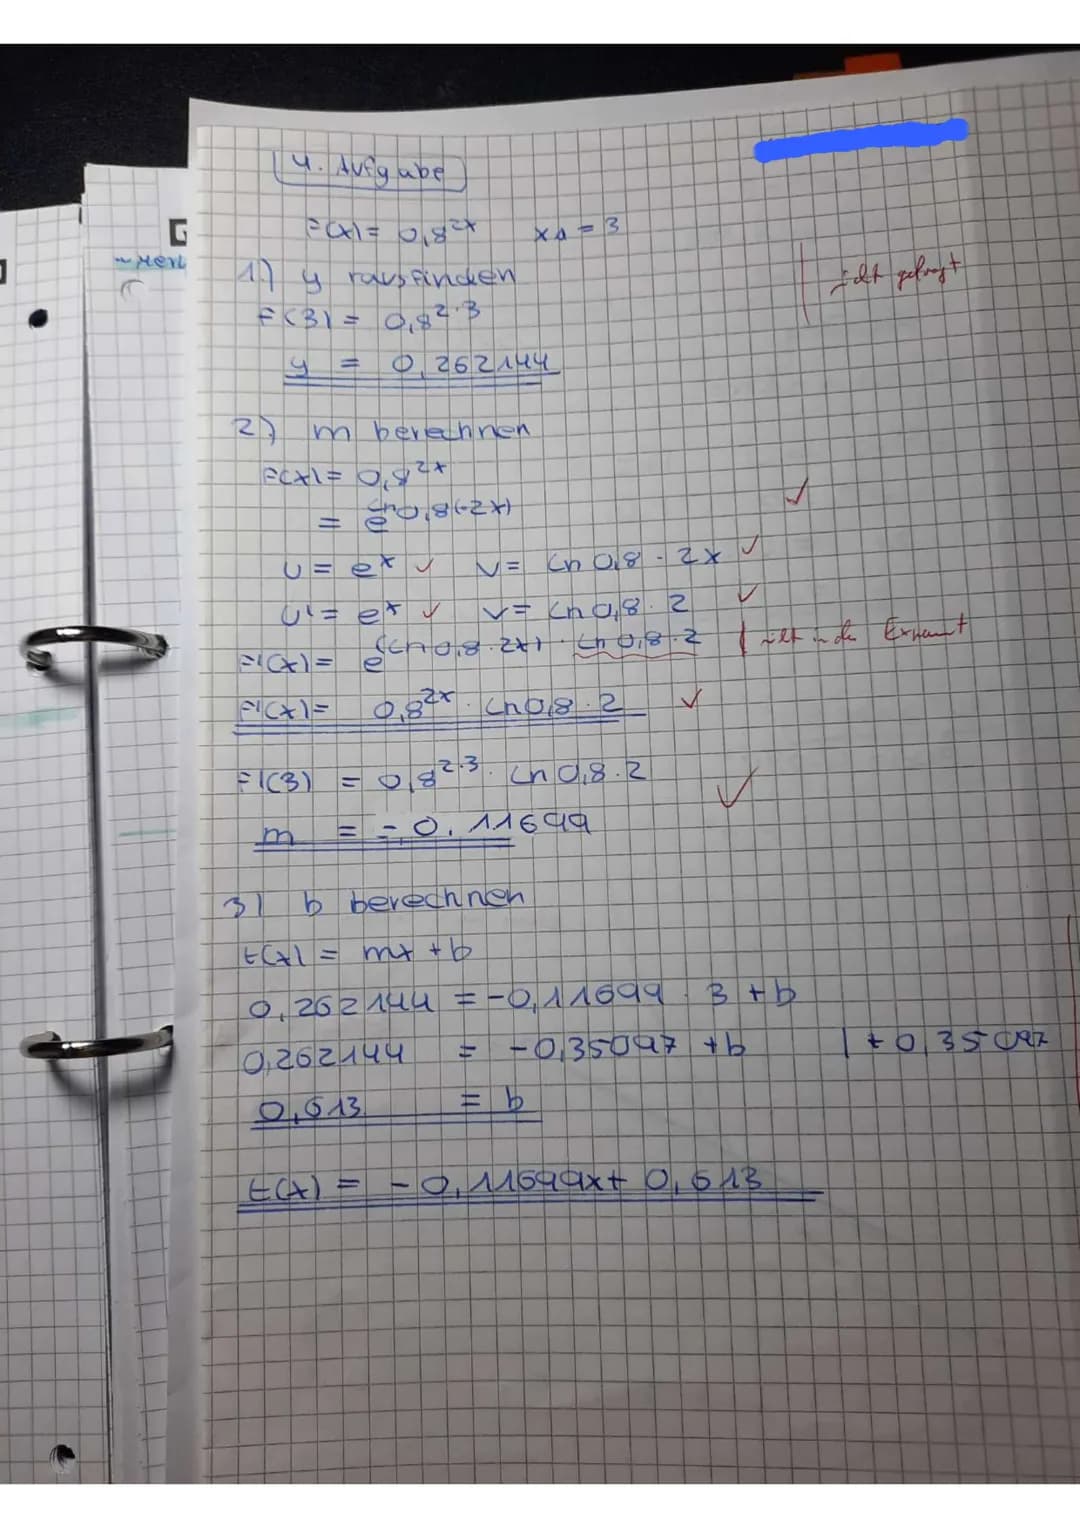 4. Aufgabe
F(x) = 0,8^2x xo = 3
1.) y rausfinden
nicht gefragt
F(3) = 0,8^2·3
y = 0,262144
2) m berechnen
F(x) = 0,8^2x
= e^ln0,8(·2x) ✓
u = e^x ✓ v = ln 0,8 · 2x ✓
u' = e^x ✓ v = ln 0,8 · 2 ✓
F'(x) = e^(ln 0,8 · 2x) · ln 0,8 · 2 nicht in den
F'(x) = 0,8^2x · ln 0,8 · 2 ✓
F'(3) = 0,8^2·3 · ln 0,8 · 2 ✓
m = -0,11699
3) b berechnen
t(x) = mx + b
0,262144 = -0,11699 · 3 + b
0,262144 = -0,35097 + b | + 0,35097
0,613 = b
t(x) = -0,11699x + 0,613